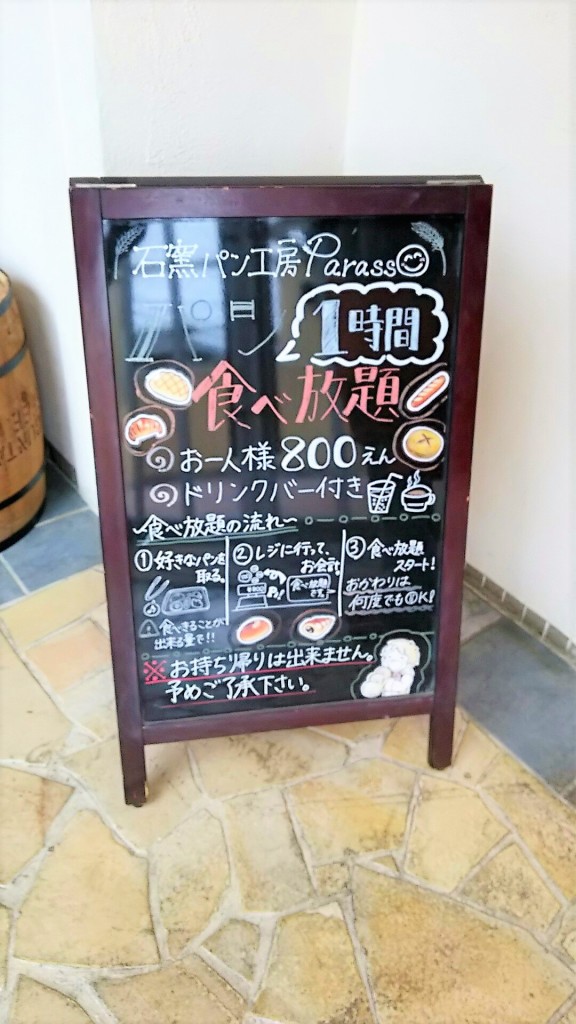 石窯パン工房Parasso
パン 1時間
食べ放題
お一人様800えん
ドリンクバー付き
食べ放題の流れ〜
①好きなパンを
取る。
⚠食べきることが
出来る量で!!
②レジに行って、
お会計
¥800
食べ放題
です。
③食べ放題
スタート!
おかわりは
何度でもOK!
※お持ち帰りは出来ません。
予めご了承下さい。